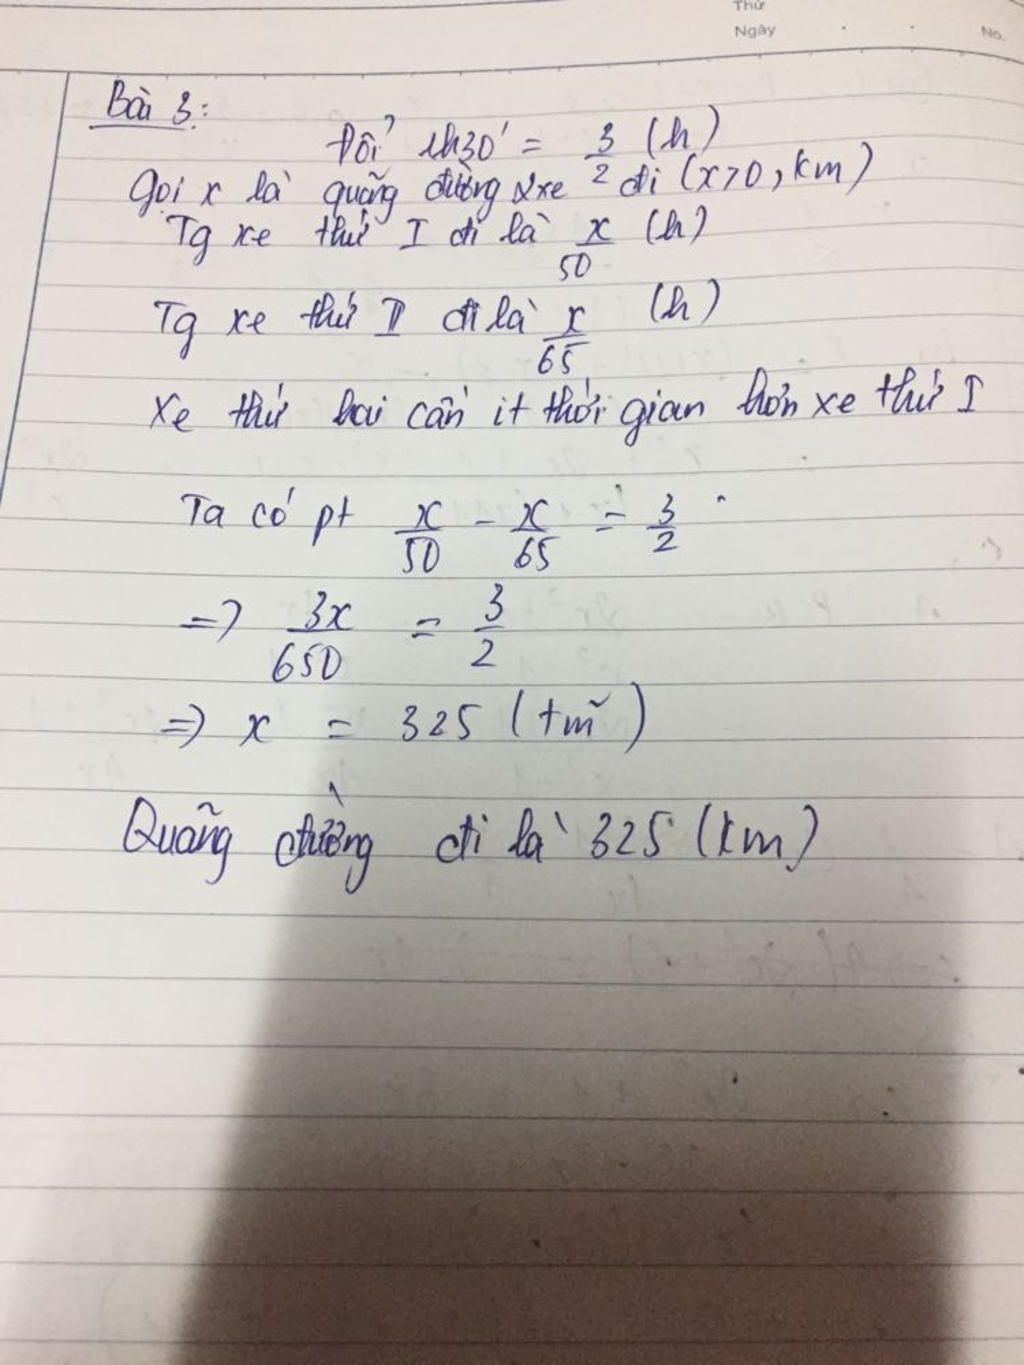 Thứ
Ngày
No.
Bài 3:
Đổi 1h30' = 3/2 (h)
Gọi x là quãng đường 2 xe đi (x>0, km)
Tg xe thứ I đi là x/50 (h)
Tg xe thứ II đi là x/65 (h)
Xe thứ hai cần ít thời gian hơn xe thứ I
Ta có pt x/50 - x/65 = 3/2
=> 3x/650 = 3/2
=> x = 325 (tm)
Quãng đường đi là 325 (km)